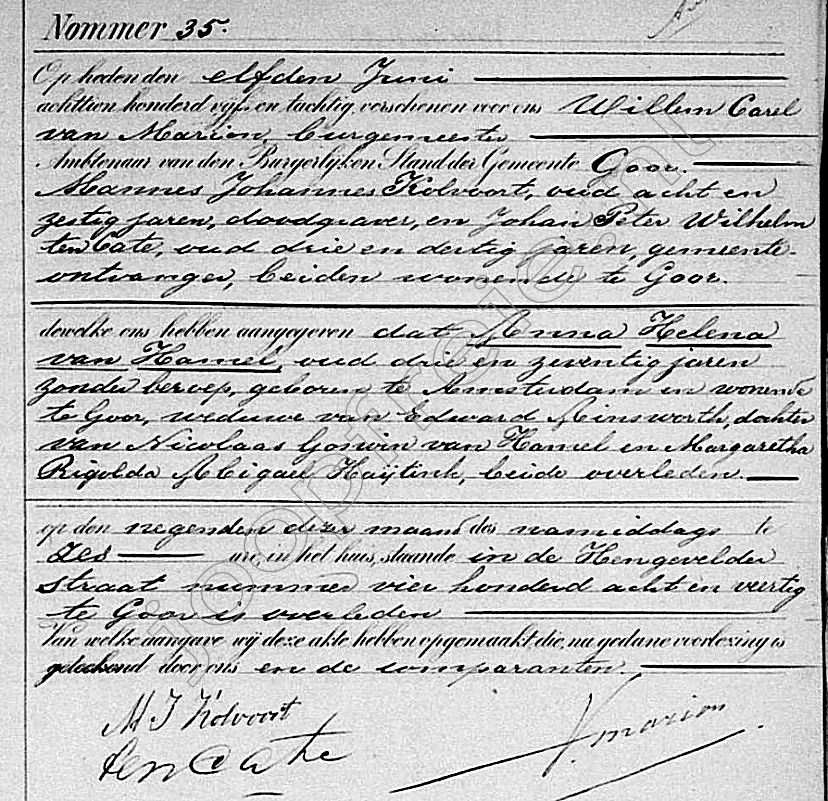 Nommer 35.
Op heden den elfden Juni
achttien honderd vijf en tachtig, verschenen voor ons Willem Carel
van Marion, burgemeester
Ambtenaar van den Burgerlijken Stand der Gemeente Goor.
Mannes Johannes Kolvoort, oud acht en
zestig jaren, doodgraver, en Johan Peter Wilhelm
ten Cate, oud drie en dertig jaren, gemeente-
ontvanger, beiden wonende te Goor.
dewelke ons hebben aangegeven dat Anna Helena
van Hamel, oud drie en zeventig jaren
zonder beroep, geboren te Amsterdam en wonende
te Goor, weduwe van Edward Ainsworth, dochter
van Nicolaas Goswin van Hamel en Margaretha
Rigolda Abigael Haÿtink, beide overleden.
op den negenden dezer maand des namiddags te
zes ure, in het huis, staande in de Hengevelder
straat nummer vier honderd acht en veertig
te Goor is overleden
Van welke aangave wij deze akte hebben opgemaakt die, na gedane voorlezing is
geteekend door ons en de comparanten.
M J Kolvoort
ten Cate
V. Marion
joopfreie.nl